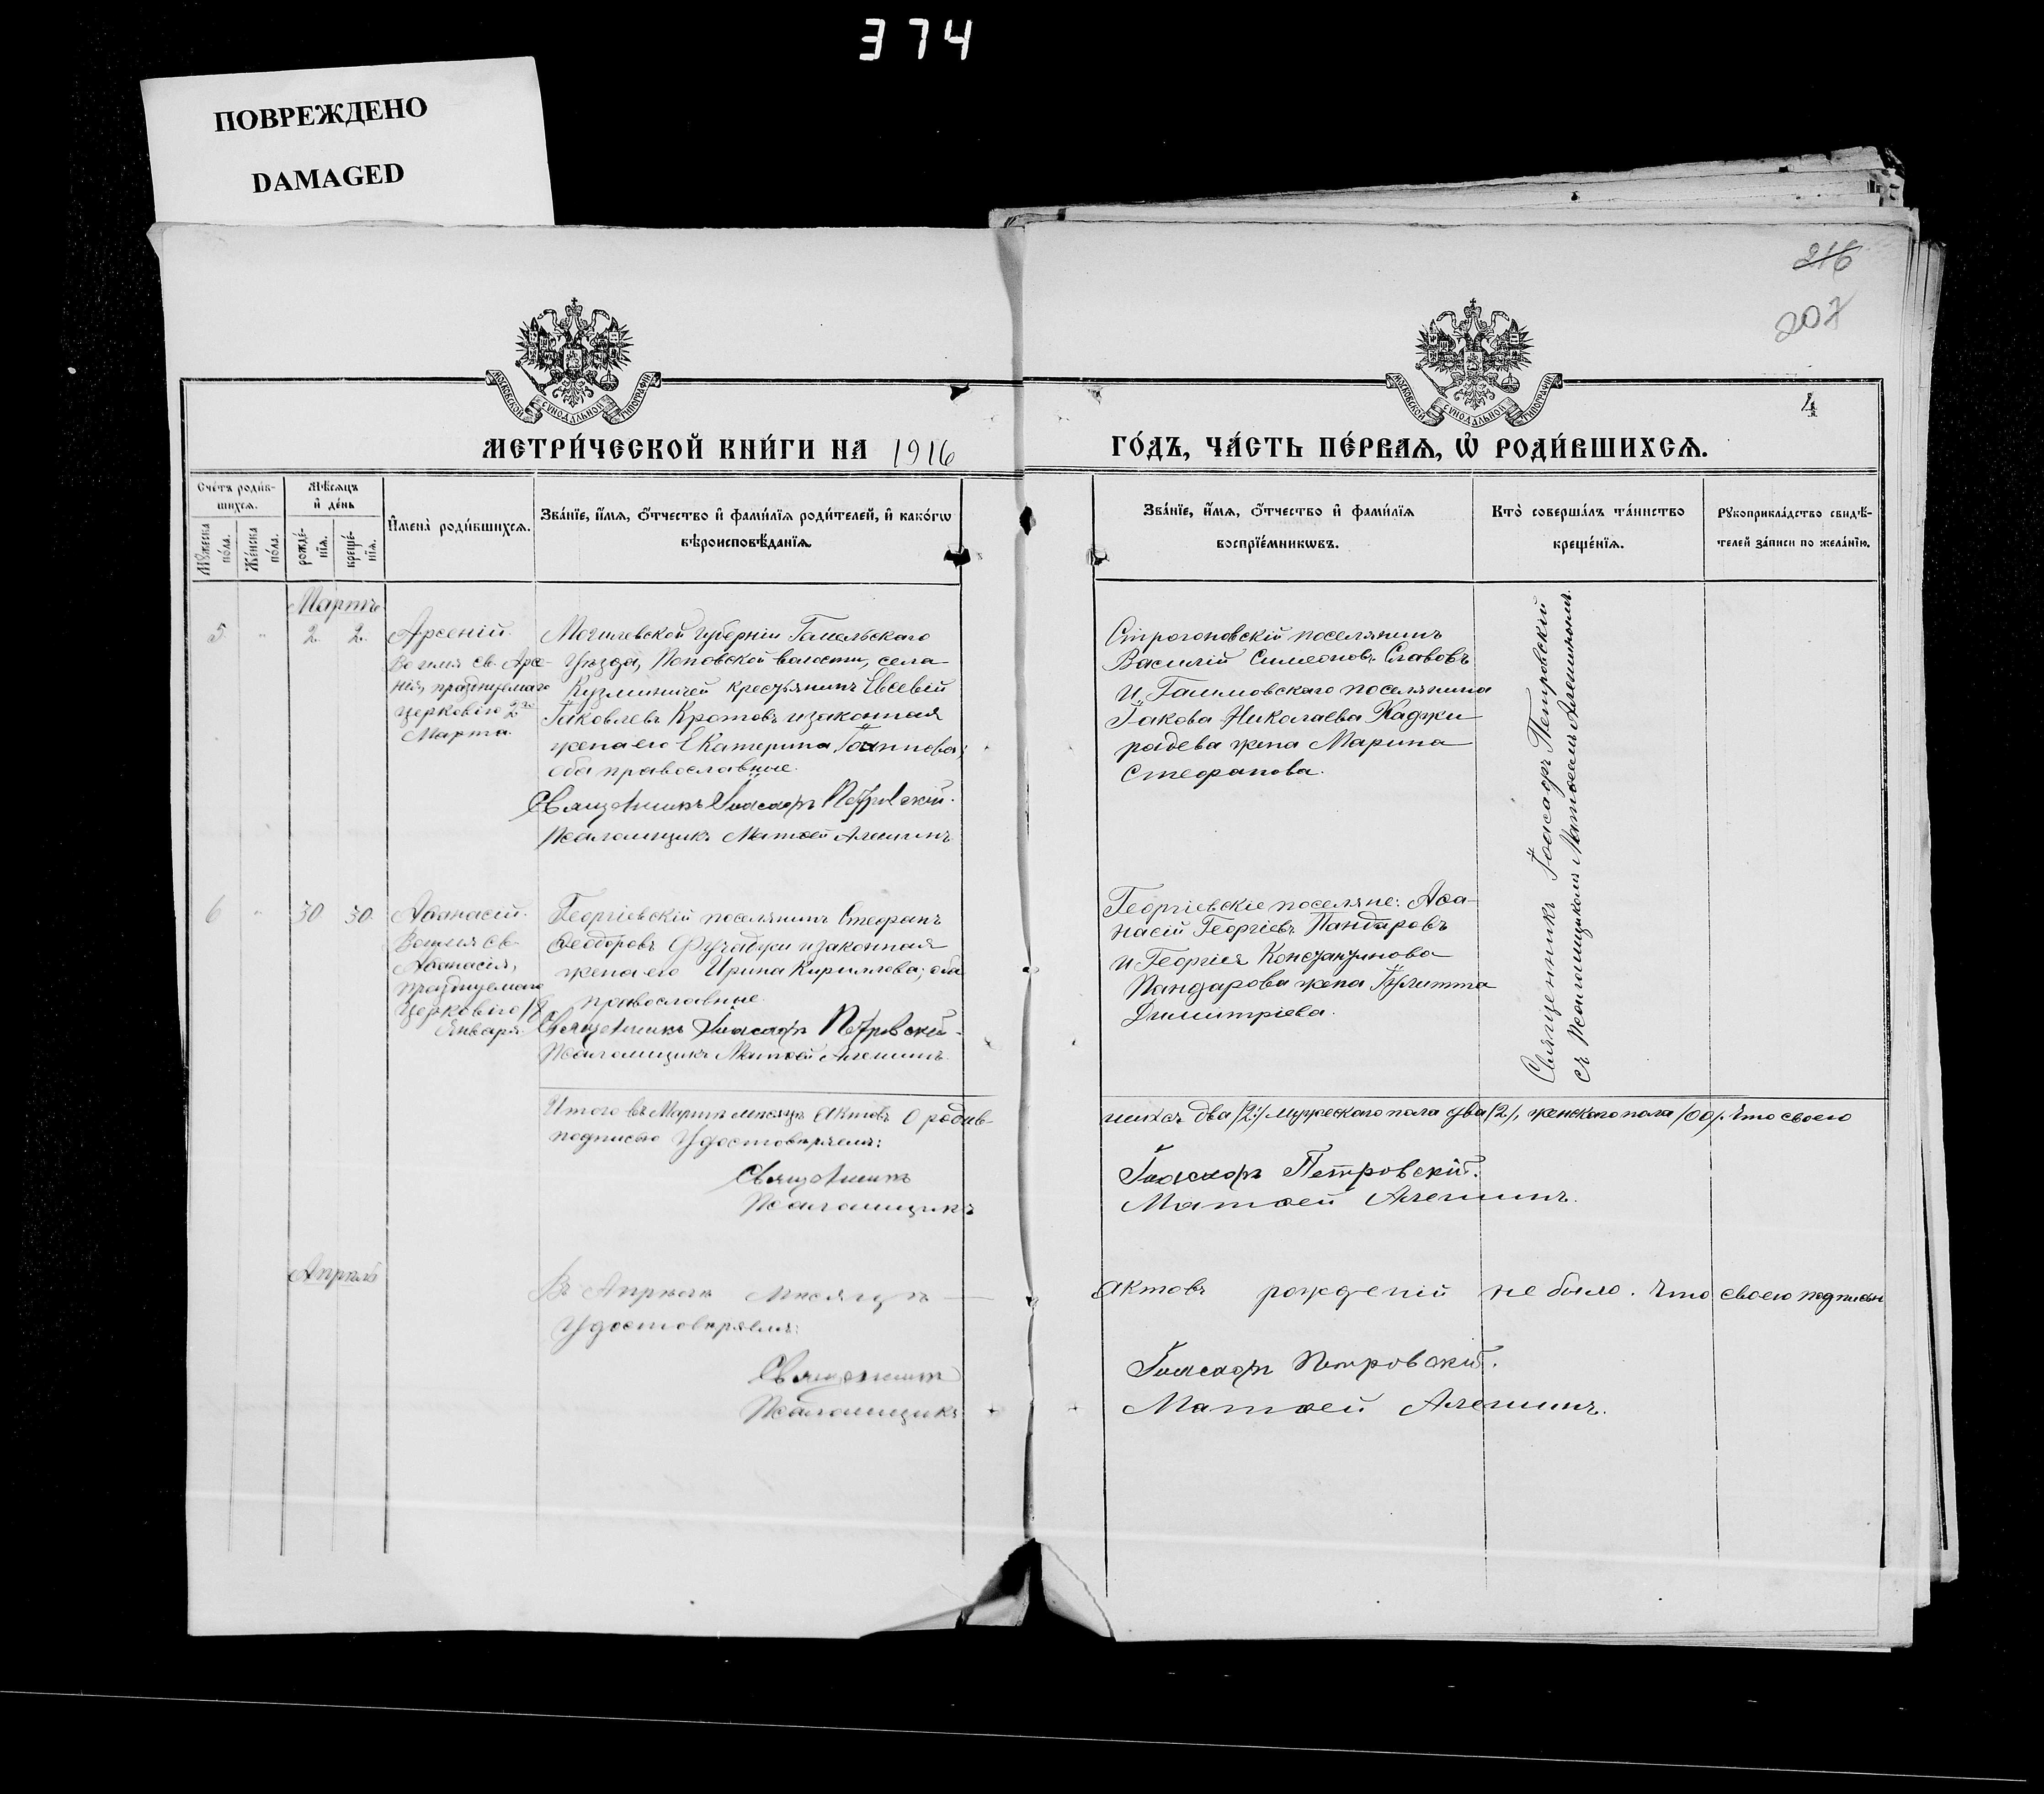 374
ПОВРЕЖДЕНО
DAMAGED
216
207
МОСКОВСКОЙ СѴНОДАЛЬНОЙ ТИПОГРАФІИ
МОСКОВСКОЙ СѴНОДАЛЬНОЙ ТИПОГРАФІИ
4
МЕТРИ́ЧЕСКОЙ КНИ́ГИ НА 1916
ГО́ДЪ, ЧА́СТЬ ПЕ́РВАѦ, Ѡ҆ РОДИ́ВШИХСѦ.
Сче́тъ роди́в-
шихсѧ.
Мꙋ́жеска по́ла.
Же́нска по́ла.
Мѣ́сѧцъ
и҆ де́нь
рожде́-
нїѧ.
креще́-
нїѧ.
И҆мена̀ роди́вшихсѧ.
Зва́нїе, и҆́мѧ, ѻ҆́тчество и҆ фами́лїѧ роди́телей, и҆ како́гѡ
вѣроисповѣ́данїѧ.
Зва́нїе, и҆́мѧ, ѻ҆́тчество и҆ фами́лїѧ
воспрїе́мникѡвъ.
Кто̀ соверша́лъ та́инство
креще́нїѧ.
Рꙋкоприкла́дство свидѣ́-
телей за́писи по жела́нїю.
Мартъ
5. " 2. 2.
Арсеній.
Во имя св. Арсе-
нія, празднуемаго
церковію 2го
Марта.
Могилевской губерніи Гомельскаго
Уѣзда, Поповской волости, села
Кузьминичей крестьянинъ Евсевій
Іаковлевъ Кротовъ и законная
жена его Екатерина Іоаннова;
оба православные.
Священникъ Іоасафъ Петровскій.
Псаломщикъ Матѳей Алешинъ
Строгоновскій поселянинъ
Василій Симеоновъ Славовъ
и поселянина
Іакова Николаева Хаджи
радева жена Марина
Стефанова.
Священникъ Іоасафъ Петровскій
съ Псаломщикомъ Матѳеемъ Алешинымъ.
6 " 30 30.
Аѳанасій.
Во имя св.
Аѳанасія,
празднуемаго
церковію 18
Января.
Георгіевскій поселянинъ Стефанъ
Ѳеодоровъ и законная
жена его Ирина Кириллова; оба
православные.
Священникъ Іоасафъ Петровскій.
Псаломщикъ Матѳей Алешинъ.
Георгіевскіе поселяне: Аѳа-
насій Георгіевъ Пандаровъ
и Георгія Константинова
Пандарова жена Іулитта
Димитріева.
Итого въ Мартѣ мѣсяцѣ актовъ о родив-
шихся два /2/ мужескаго пола два /2/, женскаго пола /00/. Что своею
подписью Удостовѣряемъ:
Священникъ Іоасафъ Петровскій.
Псаломщикъ Матѳей Алешинъ.
Апрѣль
Въ Апрѣлѣ мѣсяцѣ — актовъ рожденій не было. Что своею подписью
Удостовѣряемъ:
Священникъ Іоасафъ Петровскій.
Псаломщикъ Матѳей Алешинъ.